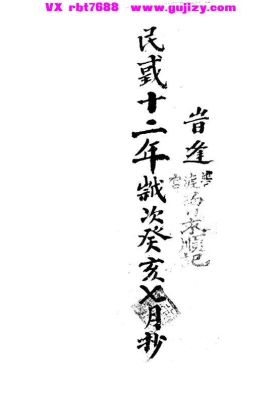 VX rbt7688  www.gujizy.com
旹逢
民國十二年歲次癸亥七月抄